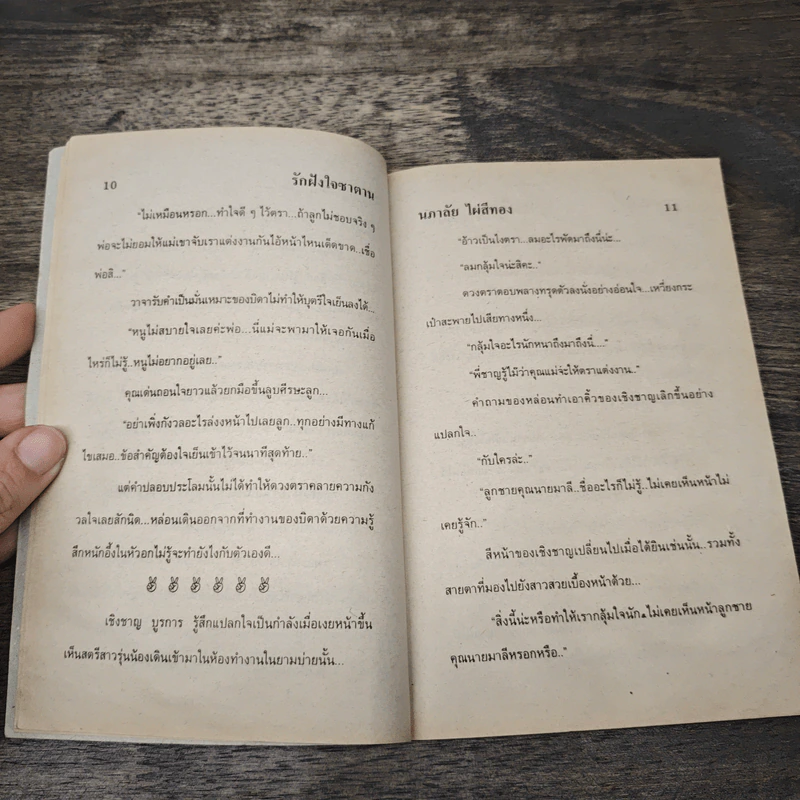 10
รักฝังใจซาตาน
"ไม่เหมือนหรอก...ทำใจดี ๆ ไว้ตรา...ถ้าลูกไม่ชอบจริง ๆ
พ่อจะไม่ยอมให้แม่เขาจับเราแต่งงานกันไอ้หน้าไหนเด็ดขาด..เชื่อ
พ่อสิ..."
วาจารับคำเป็นมั่นเหมาะของบิดาไม่ทำให้บุตรีใจเย็นลงได้...
"หนูไม่สบายใจเลยค่ะพ่อ...นี่แม่จะพามาให้เจอกันเมื่อ
ไหร่ก็ไม่รู้..หนูไม่อยากอยู่เลย.."
คุณเด่นถอนใจยาวแล้วยกมือขึ้นลูบศีรษะลูก...
"อย่าเพิ่งกังวลอะไรล่งงหน้าไปเลยลูก..ทุกอย่างมีทางแก้
ไขเสมอ..ข้อสำคัญต้องใจเย็นเข้าไว้จนนาทีสุดท้าย.."
แต่คำปลอบประโลมนั้นไม่ได้ทำให้ดวงตราคลายความกัง
วลใจเลยสักนิด...หล่อนเดินออกจากที่ทำงานของบิดาด้วยความรู้
สึกหนักอึ้งในหัวอกไม่รู้จะทำยังไงกับตัวเองดี...
เชิงชาญ บูรการ รู้สึกแปลกใจเป็นกำลังเมื่อเงยหน้าขึ้น
เห็นสตรีสาวรุ่นน้องเดินเข้ามาในห้องทำงานในยามบ่ายนั้น...
นภาลัย ไผ่สีทอง
11
"อ้าวเป็นไงตรา...ลมอะไรพัดมาถึงนี่น่ะ...
"ลมกลุ้มใจน่ะสิคะ.."
ดวงตราตอบพลางทรุดตัวลงนั่งอย่างอ่อนใจ...เหวี่ยงกระ
เป๋าสะพายไปเสียทางหนึ่ง...
"กลุ้มใจอะไรนักหนาถึงมาถึงนี่...."
"พี่ชาญรู้ไม๊ว่าคุณแม่จะให้ตราแต่งงาน.."
คำถามของหล่อนทำเอาคิ้วของเชิงชาญเลิกขึ้นอย่าง
แปลกใจ..
"กับใครล่ะ.."
"ลูกชายคุณนายมาลี..ชื่ออะไรก็ไม่รู้..ไม่เคยเห็นหน้าไม่
เคยรู้จัก.."
สีหน้าของเชิงชาญเปลี่ยนไปเมื่อได้ยินเช่นนั้น..รวมทั้ง
สายตาที่มองไปยังสาวสวยเบื้องหน้าด้วย...
"สิ่งนี้น่ะหรือทำให้เรากลุ้มใจนัก..ไม่เคยเห็นหน้าลูกชาย
คุณนายมาลีหรอกหรือ.."